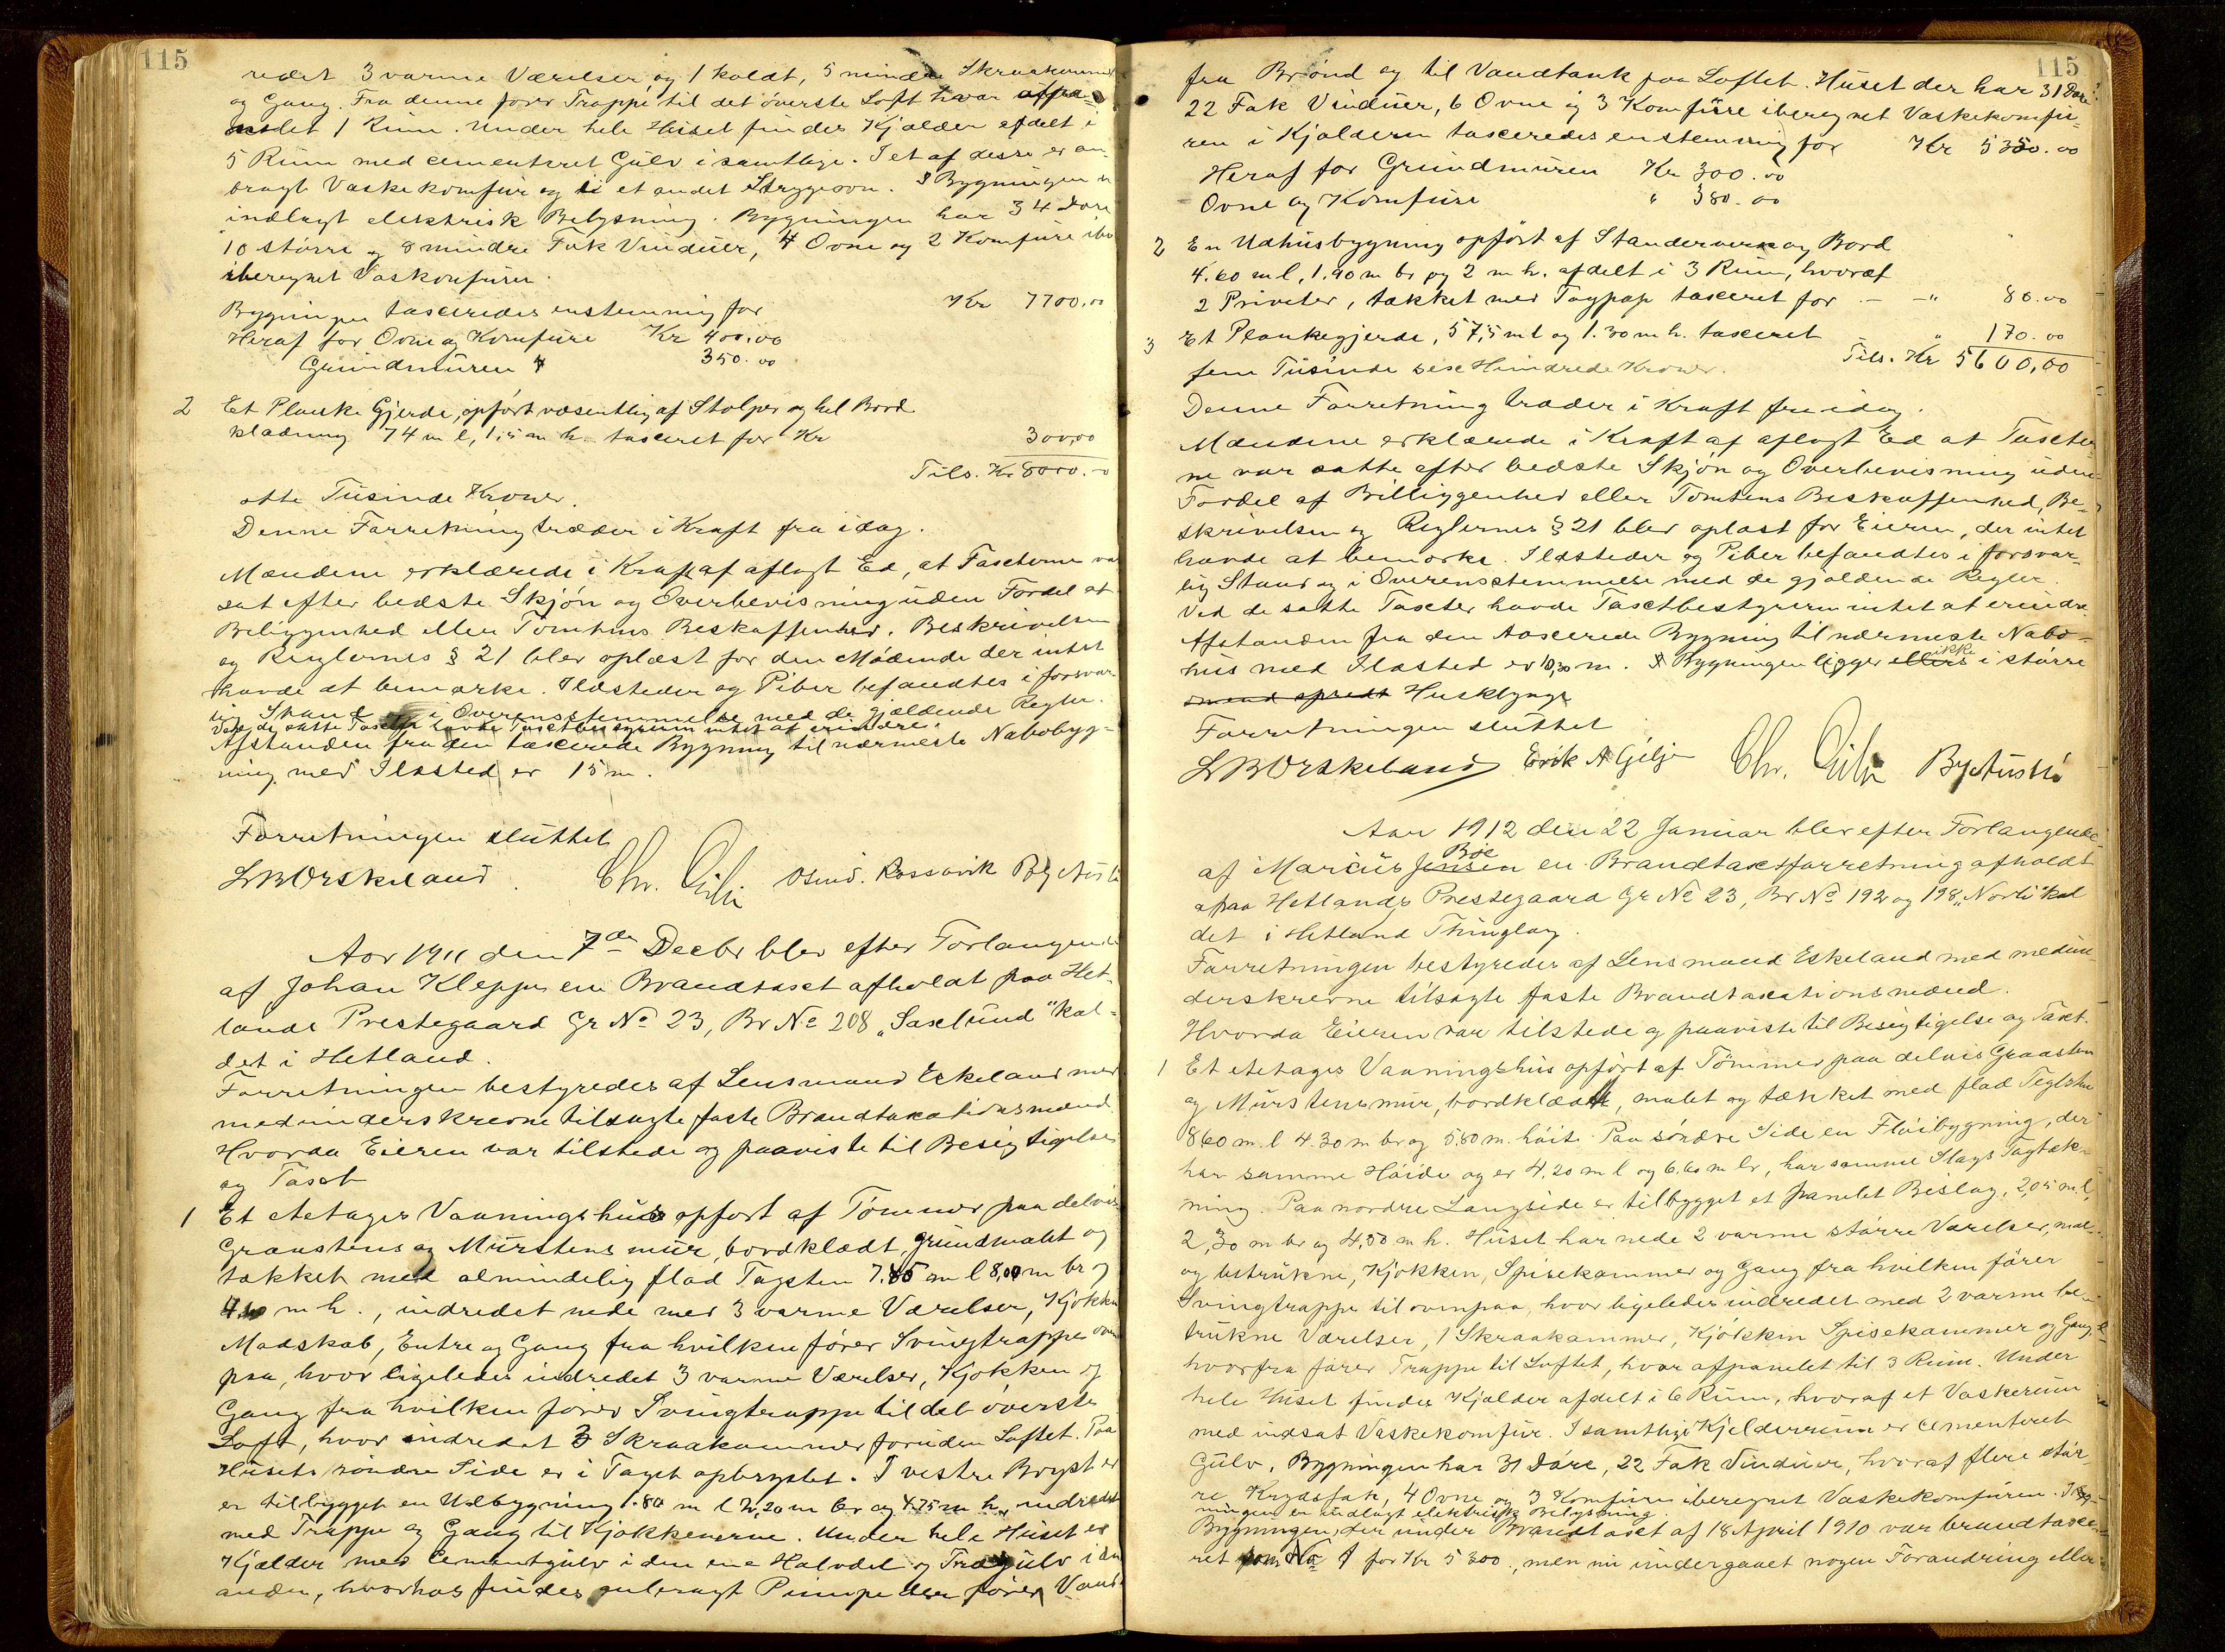 115
redet 3 varme Værelser og 1 koldt, 5 mindre Skraakammer
og Gang. Fra denne fører Trappe til det øverste Loft hvor
1 Rum. Under hele Huset findes Kjælder afdelt i
5 Rum med cementeret Gulv i samtlige. I et af disse er an-
bragt Vaskekomfur og i et andet Strygeovn. I Bygningen er
indlagt elektrisk Belysning. Bygningen har 34 Døre
10 større og 8 mindre Fak Vinduer, 4 Ovne og 2 Komfure
iberegnet Vaskomfuren.
Bygningen taxeredes enstemmig for Kr 7700.00
Heraf for Ovne og Komfure Kr 400.00
Grundmuren " 350.00
2 Et Planke Gjerde, opført væsentlig af Stolper og hel Bord
klædning 74 m l, 1,5 m h. taxeret for Kr 300,00
Tils. Kr 8000.00
otte Tusinde Kroner.
Denne Forretning træder i Kraft fra idag.
Mændene erklærede i Kraft af aflagt Ed, at Taxterne var
sat efter bedste Skjøn og Overbevisning uden Fordel af
Beliggenhed eller Tomtens Beskaffenhed. Beskrivelsen
og Reglernes § 21 blev oplæst for den Mødende der intet
havde at bemærke. Ildsteder og Piber befandtes i forsvar-
lig Stand i Overensstemmelse med de gjældende Regler.
Ved de satte Taxter havde Taxtbestyreren intet at erindre.
Afstanden fra den taxerede Bygning til nærmeste Nabobyg-
ning med Ildsted er 15 m.
Forretningen sluttet
LBØrskeland. Chr. Gilje Osmd. Rossavik
Aar 1911 den 7de Decbr blev efter Forlangende
af Johan Kleppe en Brandtaxt afholdt paa Het-
lands Prestegaard Gr No 23, Br No 208 "Saxlund" kal-
det i Hetland.
Forretningen bestyredes af Lensmand Eskeland med
medunderskrevne tilsagte faste Brandtaxationsmænd
Hvorda Eieren var tilstede og paaviste til Besigtigelse
og Taxt
1 Et etetages Vaaningshus opført af Tømmer paa delvis
Graastens og Murstens mur, bordklædt, grundmalet og
tækket med almindelig flad Tagsten 7.85 m l 8,00 m br og
m h., indredet nede med 3 varme Værelser, Kjøkken
Madskab, Entre og Gang fra hvilken fører Svingtrappe oven
paa, hvor ligeledes indredet 3 varme Værelser, Kjøkken og
Gang fra hvilken fører Svingtrappe til det øverste
Loft, hvor indredet 3 Skraakammer foruden Loftet. Paa
Husets søndre Side er i Taget opbrystet. I vestre Bryst er
er tilbygget en Udbygning 1.80 m l 2,20 m br og 4.75 m h, indredet
med Trappe og Gang til Kjøkkenerne. Under hele Huset er
Kjælder med Cementgulv i den ene Halvdel og Trægulv i den
anden, hvorhos findes anbragt Pumpe der fører Vand
115
fra Brønd og til Vandtank paa Loftet. Huset der har 31 Døre
22 Fak Vinduer, 6 Ovne og 3 Komfure iberegnet Vaskekomfu-
ren i Kjælderen taxeredes enstemmig for Kr 5350.00
Heraf for Grundmuren Kr 300.00
Ovne og Komfure " 380.00
2 En Udhusbygning opført af Standerverk og Bord
4.60 m l, 1.90 m br og 2 m h. afdelt i 3 Rum, hvoraf
2 Priveter, tækket med Tagpap taxeret for - - " 80.00
3 Et Plankegjerde, 57,5 m l og 1.30 m h. taxeret " 170.00
fem Tusinde sex Hundrede Kroner. Tils. Kr 5600,00
Denne Forretning træder i Kraft fra idag.
Mændene erklærede i Kraft af aflagt Ed at Taxter-
ne var satte efter bedste Skjøn og Overbevisning uden
Fordel af Billiggenhed eller Tomtens Beskaffenhed, Be-
skrivelsen og Reglernes § 21 blev oplæst for Eieren, der intet
havde at bemærke. Ildsteder og Piber befandtes i forsvar-
lig Stand og i Overensstemmelse med de gjældende Regler.
Ved de satte Taxter havde Taxtbestyreren intet at erindre.
Afstanden fra den taxerede Bygning til nærmeste Nabo-
hus med Ildsted er 10,30 m. Bygningen ligger ellers ikke i større
smend spredt Husklynge
Forretningen sluttet
LBØrskeland Erik A Gilje Chr. Gilje
Aar 1912 den 22 Januar blev efter Forlangende
af Marius Jensen Bøe en Brandtaxtforretning afholdt
paa Hetlands Prestegaard Gr No 23, Br No 192 og 198 "Norli" kal
det i Hetland Thinglag.
Forretningen bestyredes af Lensmand Eskeland med medun-
derskrevne tilsagte faste Brandtaxationsmænd.
Hvorda Eieren var tilstede og paaviste til Besigtigelse og Taxt.
1 Et etetages Vaaningshus opført af Tømmer paa delvis Graasten
og Murstensmur, bordklædt, malet og tækket med flad Teglsten
8.60 m. l 4.30 m br og 5.80 m. høit. Paa søndre Side en Fløibygning, der
har samme Høide og er 4,20 m l og 6.60 m br, har samme Slags Tagtæk-
ning. Paa nordre Langside er tilbygget et panelet Bislag, 2,05 m l,
2,30 m br og 4,50 m h. Huset har nede 2 varme større Værelser, mal-
og betrukne, Kjøkken, Spisekammer og Gang fra hvilken fører
Svingtrappe til ovenpaa, hvor ligeledes indredet med 2 varme be-
trukne Værelser, 1 Skraakammer, Kjøkken Spisekammer og Gang,
hvorfra fører Trappe til Loftet, hvor afpanelet til 3 Rum. Under
hele Huset findes Kjælder afdelt i 6 Rum, hvoraf et Vaskerum
med indsat Vaskekomfur. I samtlige Kjelderrum er cementeret
Gulv. Bygningen har 31 Døre, 22 Fak Vinduer, hvoraf flere stør-
re Krydsfak, 4 Ovne og 3 Komfure iberegnet Vaskekomfuren. I Byg-
ningen er indlagt elektrisk Belysning.
Bygningen, der under Brandtaxt af 18 April 1910 var brandtaxe-
ret som No 1 for Kr 5300., men nu undergaaet nogen Forandring eller